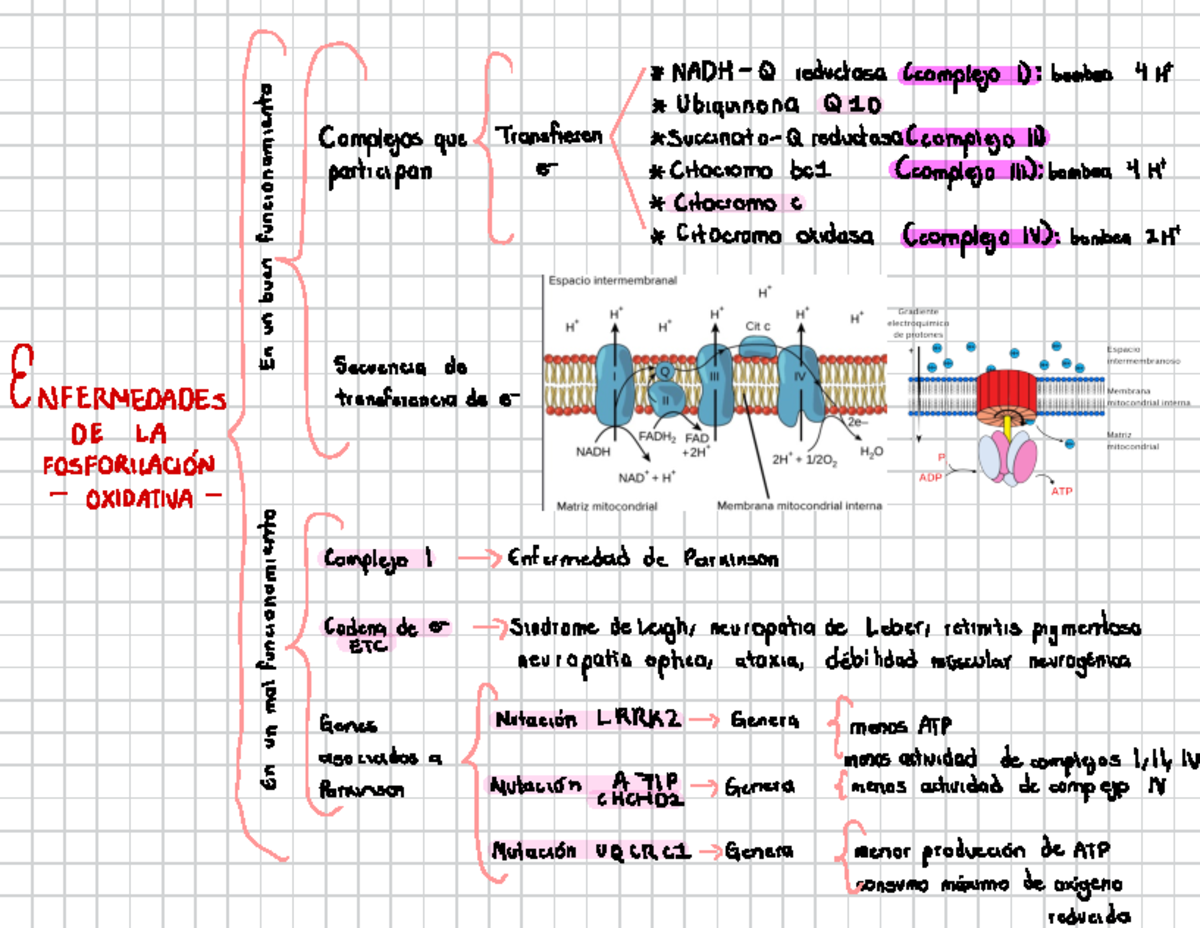 ENFERMEDADES
DE LA
FOSFORILACIÓN
- OXIDATIVA -
En un buen funcionamiento
Complejos que
participan
Transfieren
e-
* NADH-Q reductasa (complejo I): bombea 4 H+
* Ubiquinona Q10
* Succinato-Q reductasa (complejo II)
* Citocromo bc1 (complejo III): bombea 4 H+
* Citocromo c
* Citocromo oxidasa (complejo IV): bombea 2 H+
Secuencia de
transferencia de e-
Espacio intermembranal
H+ H+ H+ H+ H+ H+ H+
Cit c
I Q II III IV
NADH
NAD+ + H+
FADH2 FAD
+2H+
2H+ + 1/2O2
2e-
H2O
Matriz mitocondrial
Membrana mitocondrial interna
Gradiente
electroquímico
de protones
Espacio
intermembranoso
Membrana
mitocondrial interna
Matriz
mitocondrial
P
ADP
ATP
En un mal funcionamiento
Complejo I → Enfermedad de Parkinson
Cadena de e-
ETC
→ Sindrome de Leigh, neuropatia de Leber, retinitis pigmentosa
neuropatia optica, ataxia, débilidad muscular neurogénica
Genes
asociados a
Parkinson
Mutación LRRK2 → Genera
menos ATP
menos actividad de complejos I, II, IV
Mutación A71P
CHCHD2
→ Genera
menos actividad de complejo IV
Mutación UQCRC1 → Genera
menor producción de ATP
consumo máximo de oxigeno
reducido